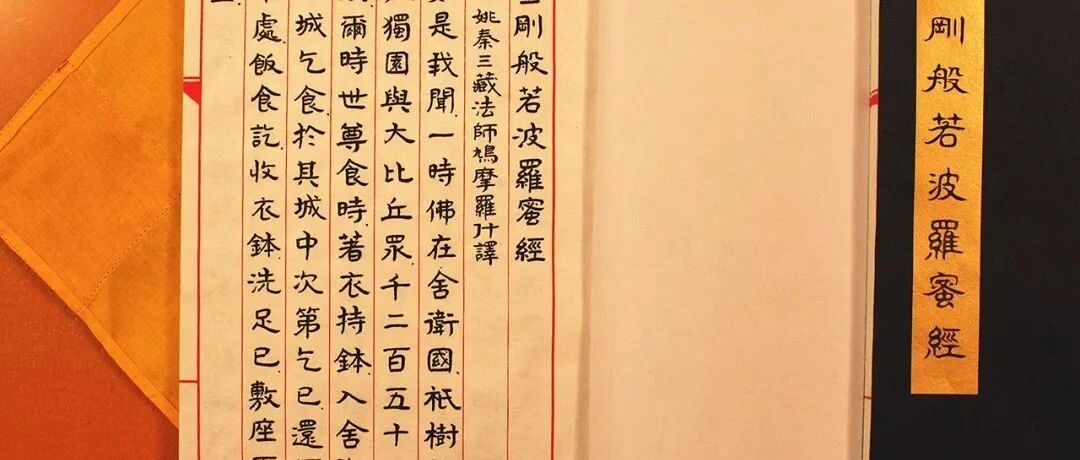 剛般若波羅蜜經
剛般若波羅蜜經
姚秦三藏法師鳩摩羅什譯
是我聞一時佛在舍衛國祇樹
獨園與大比丘眾千二百五十
爾時世尊食時著衣持鉢入舍
城乞食於其城中次第乞已還
處飯食訖收衣鉢洗足已敷座